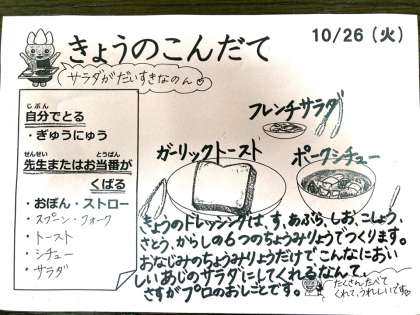 きょうのこんだて
10/26（火）
サラダがだいすきなのん♡
じぶん
自分でとる
・ぎゅうにゅう
せんせい　とうばん
先生またはお当番が
くばる
・おぼん・ストロー
・スプーン・フォーク
・トースト
・シチュー
・サラダ
フレンチサラダ
ガーリックトースト
ポークシチュー
きょうのドレッシングは、す、あぶら、しお、こしょう、
さとう、からしの6つのちょうみりょうでつくります。
おなじみのちょうみりょうだけで、こんなにおい
しいあじのサラダにしてくれるなんて、
さすがプロのおしごとです。
たくさんたべて
くれて、うれしいです♡